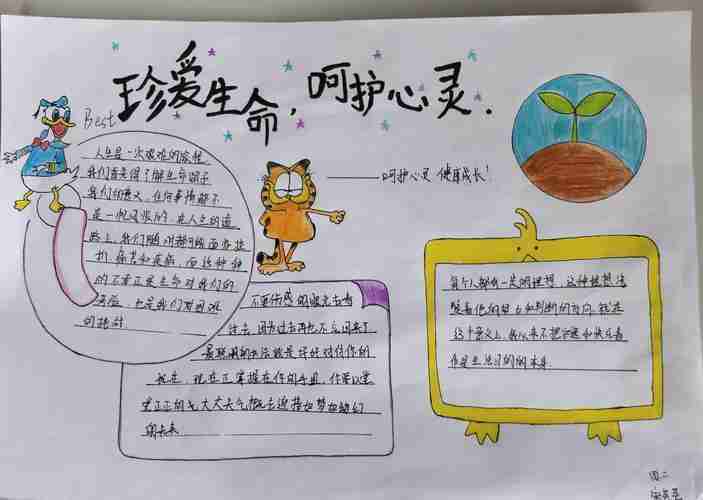 珍爱生命，呵护心灵．
Best
呵护心灵 健康成长！
人生是一次艰难的旅程
我们首先得了解生命的
是一帆风顺的，在人生的道
路上，我们随时都可能面临挫
折、痛苦和疾病，而这种种
的不幸正是生命对我们的
也是我们对困难
的挑战
不要伤感的眼光去看
过去，因为过去再也不会回来了
最聪明的办法就是好好对待你的
现在，现在正掌握在你的手里，你要以堂
堂正正的大丈夫气概去迎接如梦如幻
的未来
每个人都有一定的理想，这种理想决
定着他的努力和判断的方向，就在
这个意义上，我从来不把安逸和快乐看
作是生活目的的本身